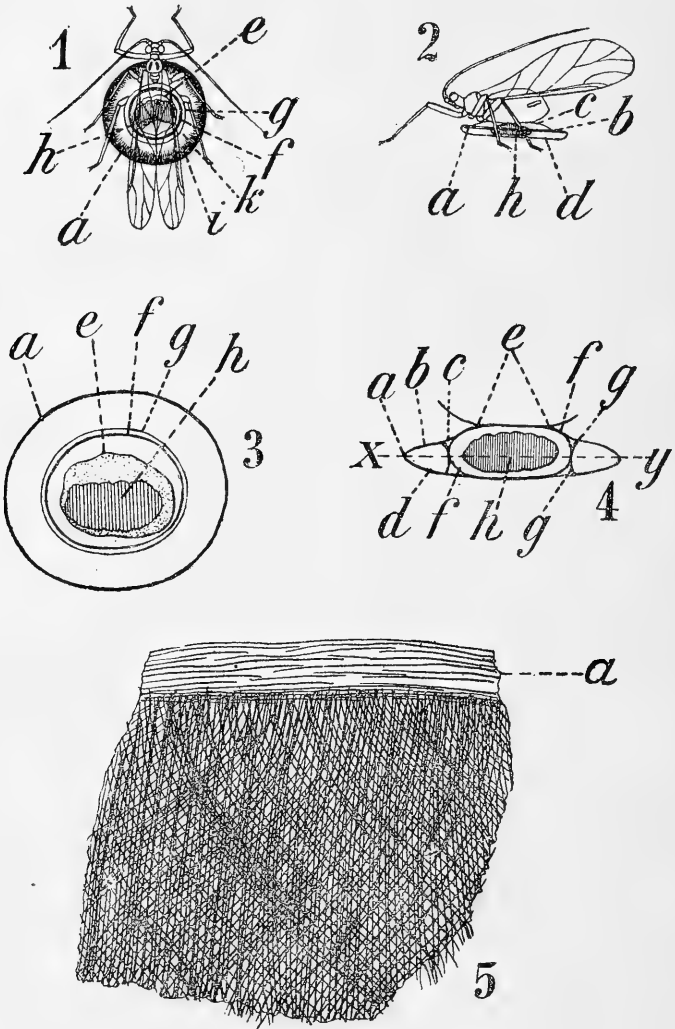 1
e
g
h
f
k
a
i
2
c
b
a
h
d
a
e
f
g
h
3
a
b
c
e
f
g
x
y
d
f
h
g
4
a
5